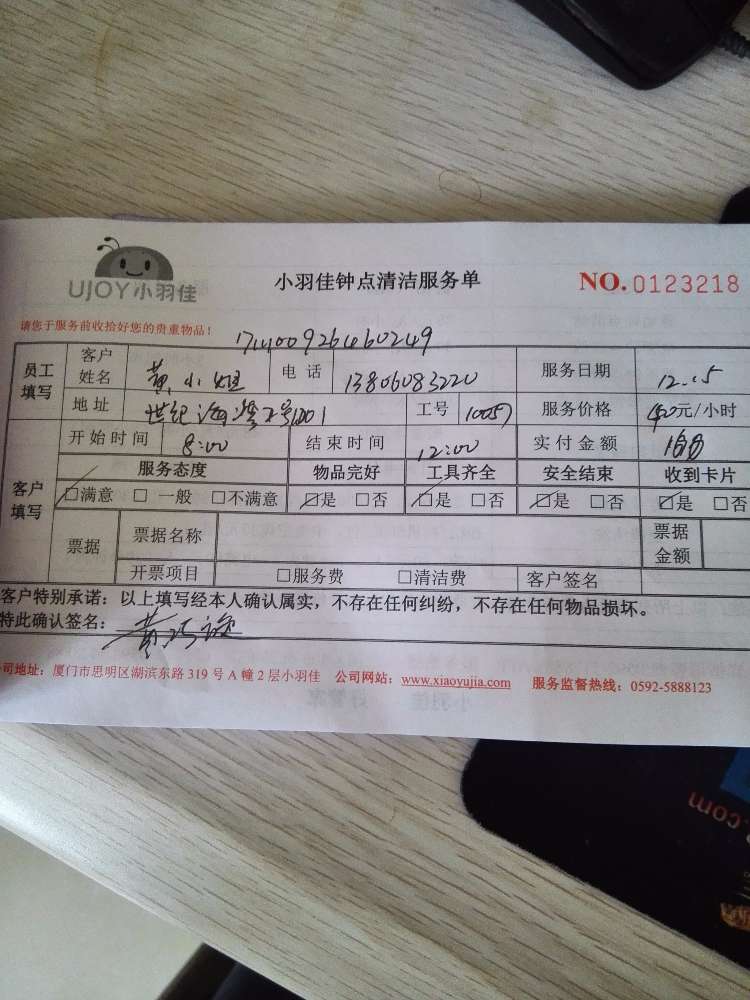 UJOY小羽佳
小羽佳钟点清洁服务单
NO.0123218
请您于服务前收拾好您的贵重物品！
员工填写 客户姓名 黄小姐 电话 13806083220 服务日期 12.15
地址 世纪海湾2号1201 工号 10057 服务价格 40元/小时
客户填写 开始时间 8:00 结束时间 12:00 实付金额 160
服务态度 物品完好 工具齐全 安全结束 收到卡片
☑满意 □一般 □不满意 ☑是 □否 ☑是 □否 ☑是 □否 ☑是 □否
票据 票据名称 票据金额
开票项目 □服务费 □清洁费 客户签名
客户特别承诺：以上填写经本人确认属实，不存在任何纠纷，不存在任何物品损坏。
特此确认签名：黄
司地址：厦门市思明区湖滨东路 319 号 A 幢 2 层小羽佳 公司网站：www.xiaoyujia.com 服务监督热线：0592-5888123
.com